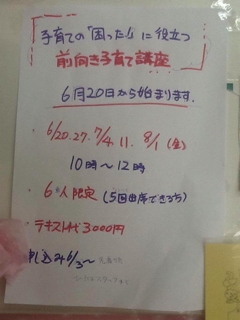 子育ての「困った!」に役立つ
前向き子育て講座
6月20日から始まります.
・6/20.27.7/4.11.8/1(金)
10時～12時
・6人限定(5回出席できる方)
・テキスト代3000円
申し込み6/3～